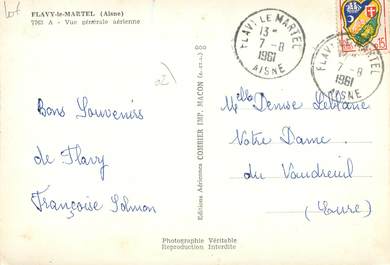 Lot
FLAVY-le-MARTEL (Aisne)
7761 A - Vue générale aérienne
FLAVY LE MARTEL
13 -
7 - 8
1961
AISNE
FLAVY LE MARTEL
7 - 8
1961
AISNE
15
Bons Souvenirs
de Flavy
Françoise Solmon
Editions Aériennes COMBIER IMP. MACON (S.-et-L.)
Melle Denise Leblane
Notre Dame
du Vaudreuil
(Eure)
Photographie Véritable
Reproduction Interdite